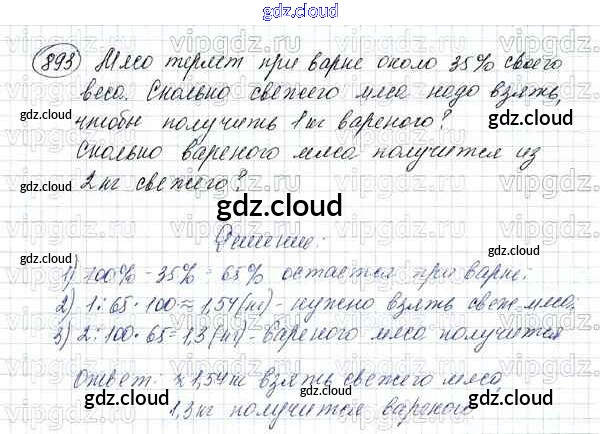 gdz.cloud
893 Мясо теряет при варке около 35% своего
веса. Сколько свежего мяса надо взять,
чтобы получить 1 кг вареного?
Сколько вареного мяса получится из
2 кг свежего?
gdz.cloud
Решение:
1) 100% - 35% = 65% остается при варке;
2) 1 : 65 · 100 ≈ 1,54 (кг) - нужно взять свеж. мясо;
3) 2 : 100 · 65 = 1,3 (кг) - вареного мяса получится
Ответ: ≈ 1,54 кг взять свежего мяса,
1,3 кг получится вареного
gdz.cloud